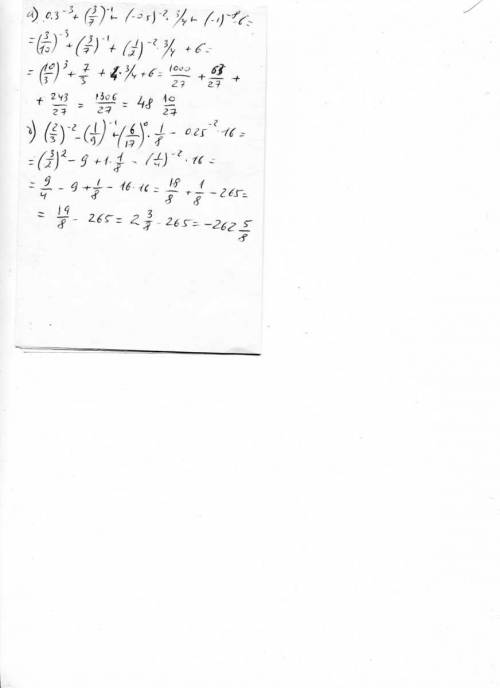 а) 0.3⁻³ + (3/7)⁻¹ + (-0.5)⁻² · 3/4 + (-1)⁻⁸ · 6 =
= (3/10)⁻³ + (3/7)⁻¹ + (1/2)⁻² · 3/4 + 6 =
= (10/3)³ + 7/3 + 4 · 3/4 + 6 = 1000/27 + 63/27 +
+ 243/27 = 1306/27 = 48 10/27
б) (2/3)⁻² - (1/9)⁻¹ + (6/17)⁰ · 1/8 - 0.25⁻² · 16 =
= (3/2)² - 9 + 1 · 1/8 - (1/4)⁻² · 16 =
= 9/4 - 9 + 1/8 - 16 · 16 = 18/8 + 1/8 - 265 =
= 19/8 - 265 = 2 3/8 - 265 = -262 5/8